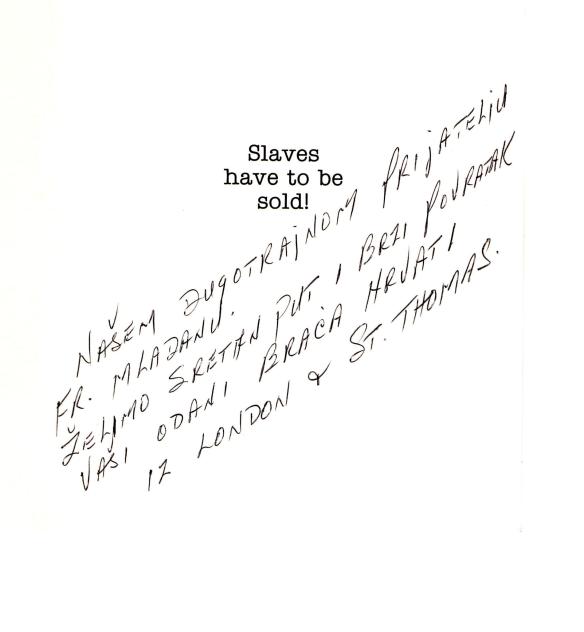 Slaves
have to be
sold!
NAŠEM DUGOTRAJNOM PRIJATELJU
FR. MLADANU.
ŽELJMO SRETAN PUT I BRZI POVRATAK
VAŠI ODANI BRAĆA HRVATI
IZ LONDON & ST. THOMAS.